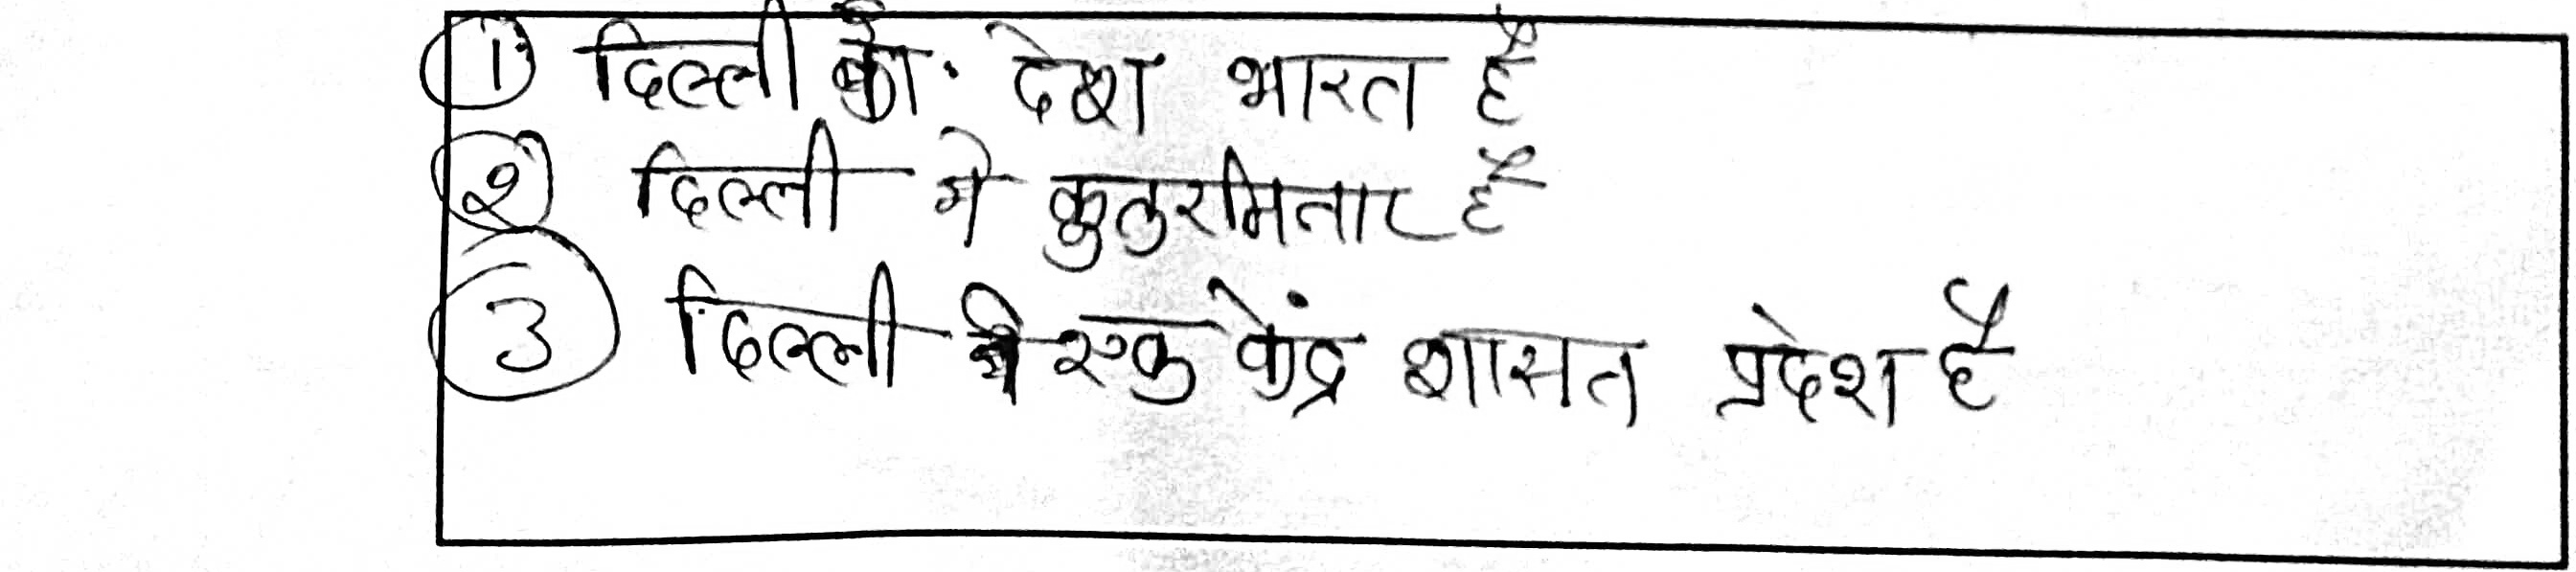 ① दिल्ली का देश भारत है
② दिल्ली मे कुतुरमिनार है
③ दिल्ली मे एक केंद्र शासत प्रदेश है